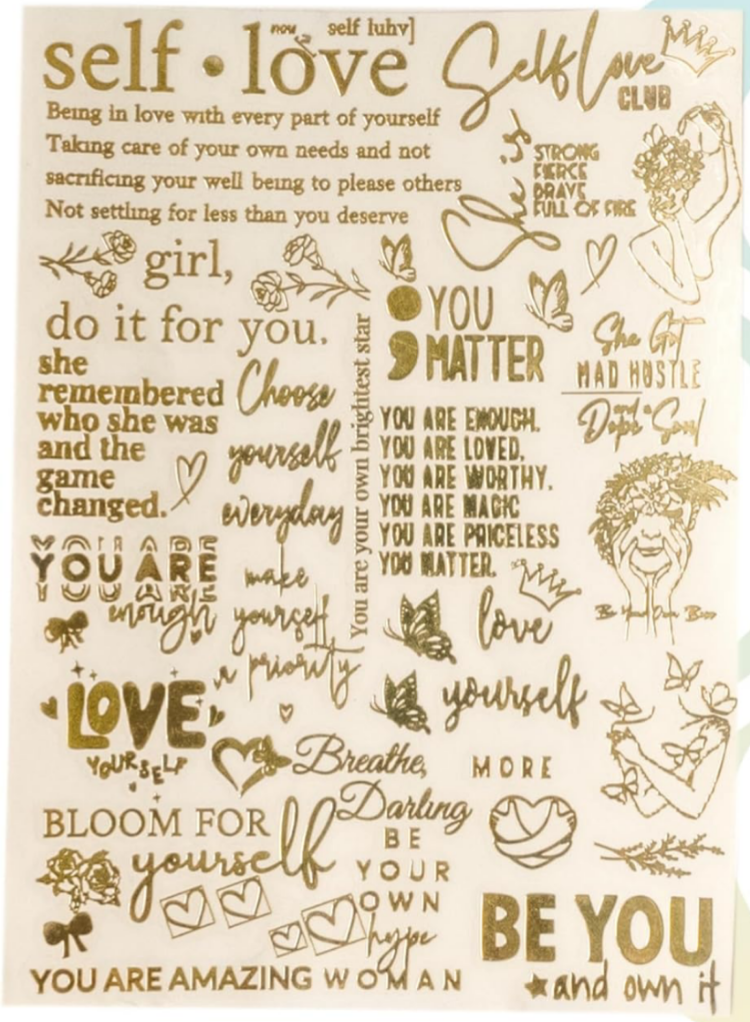 self • love
noun
self luhv]
Being in love with every part of yourself
Taking care of your own needs and not
sacrificing your well being to please others
Not settling for less than you deserve
Self Love
CLUB
She is
STRONG
FIERCE
BRAVE
FULL OF FIRE
girl,
do it for you.
she
remembered
who she was
and the
game
changed.
Choose
yourself
everyday
You are your own brightest star
YOU
MATTER
She Got
MAD HUSTLE
and a
Dope Soul
YOU ARE ENOUGH.
YOU ARE LOVED.
YOU ARE WORTHY.
YOU ARE MAGIC
YOU ARE PRICELESS
YOU MATTER.
Be Your Own Boss
YOU ARE
YOU ARE
YOU ARE
enough
make
yourself
a priority
love
yourself
LOVE
YOURSELF
Breathe,
Darling
MORE
BLOOM FOR
yourself
BE
YOUR
OWN
hype
YOU ARE AMAZING WOMAN
BE YOU
and own it